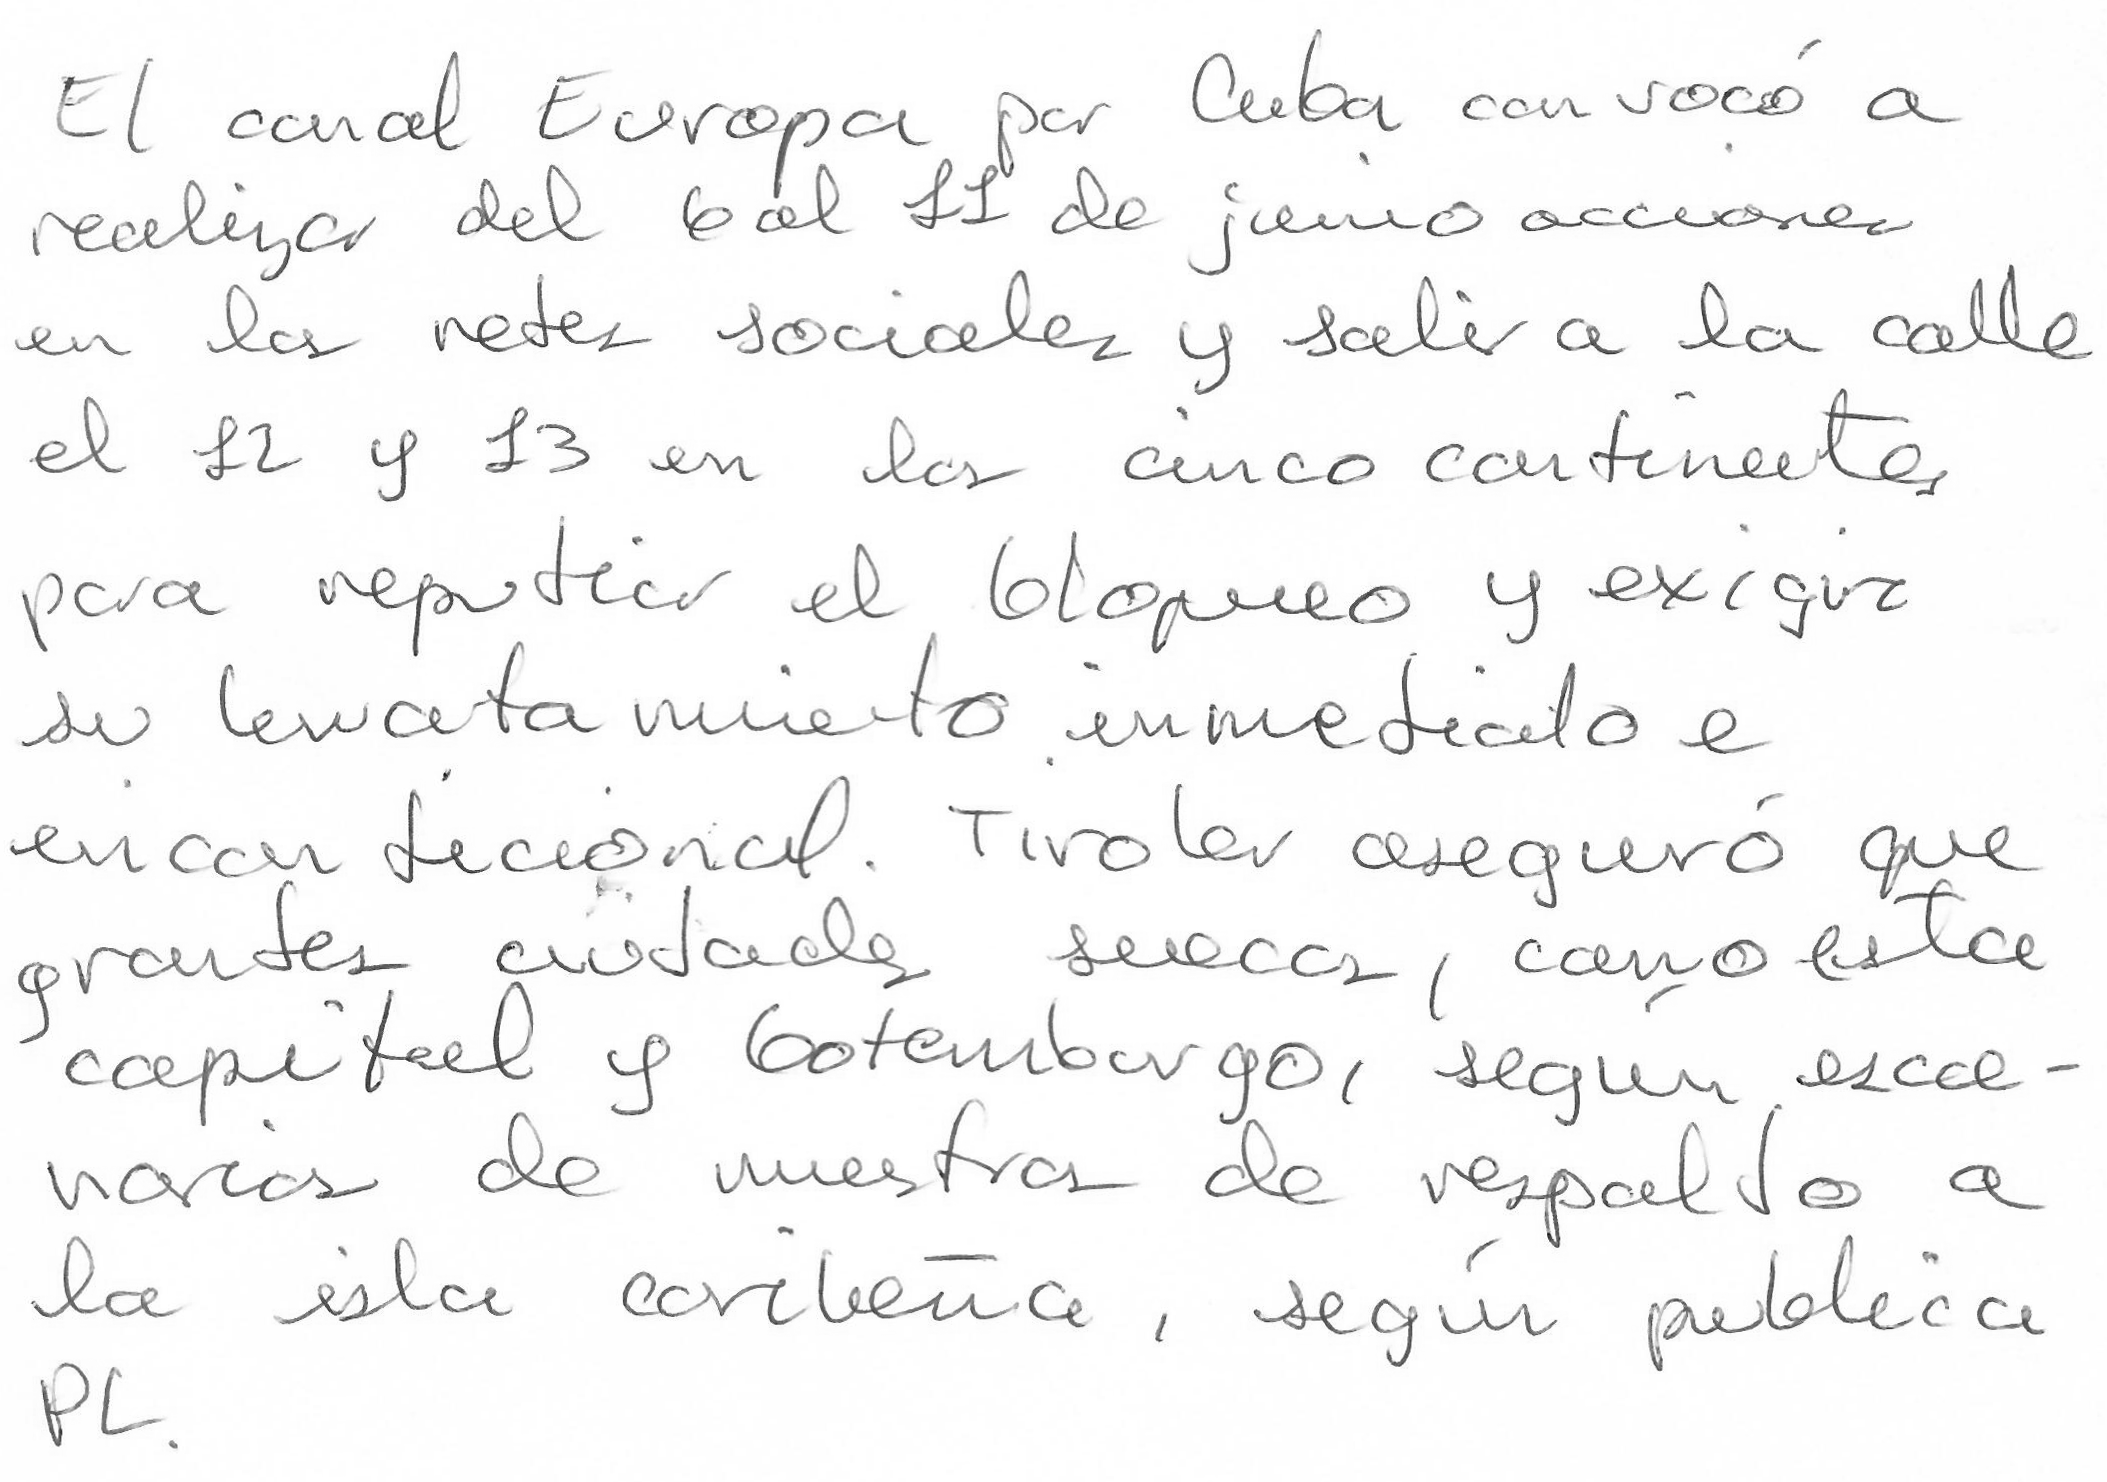 El canal Europa por Cuba convocó a
realizar del 6 al 11 de junio acciones
en las redes sociales y salir a la calle
el 12 y 13 en los cinco continentes
para repudiar el bloqueo y exigir
su levantamiento inmediato e
incondicional. Tiroler aseguró que
grandes ciudades suecas, como esta
capital y Gotemburgo, según esce-
narios de muestras de respaldo a
la isla caribeña, según publica
PL.